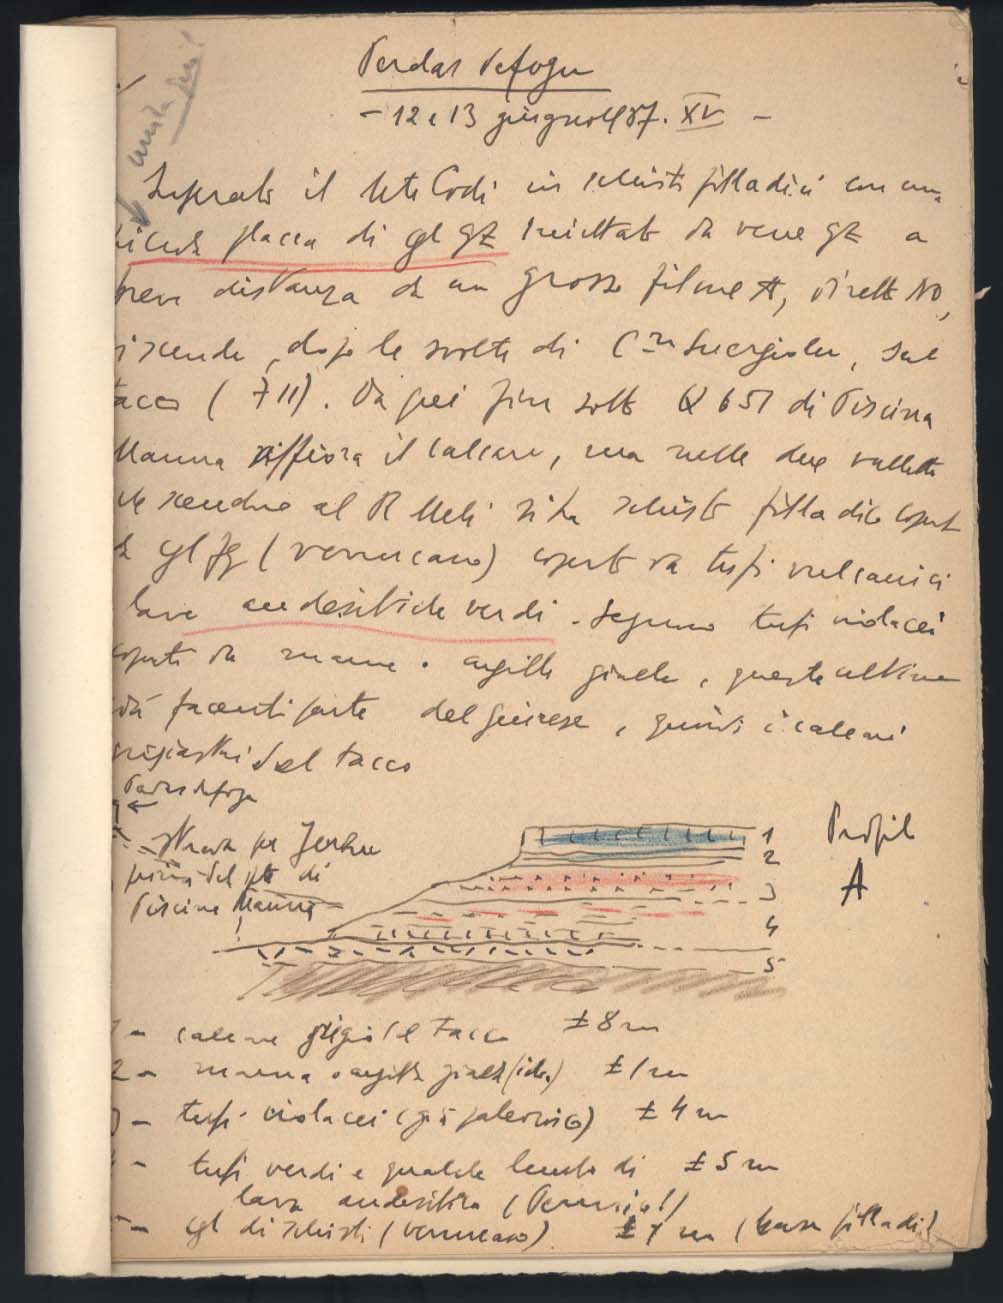 Perdas Defogu
- 12 e 13 giugno 1937. XV -
Superato il M.te Codi in schisti filladici con una
placca di cgl qz iniettato da vene qz a
breve distanza da un grosso filone, dirett NO,
scende, dopo le svolte di C.ra , sul
tacco (711). Da qui fino sotto Q 651 di Piscina
Manna riaffiora il calcare, ma nelle due vallette
che scendono al R Meli si ha schisto filladico copert
da cgl (verrucano) coperto da tufi vulcanici
lave andesitiche verdi. Seguono tufi violacei
coperti da marne o argille gialle, queste ultime
già facenti parte del Giurese, quindi i calcari
grigiastri del tacco
Perdasdefogu
strada per Jerzu
prima del pte di
Piscina Manna
1
2
3
4
5
Profilo
A
1 - calcare grigio del Tacco ± 8 m
2 - marna o argilla gialla (id.) ± 1 m
3 - tufi violacei (già paleozoico) ± 4 m
4 - tufi verdi e qualche lembo di ± 5 m
lava andesitica (Permico!)
5 - cgl di schisti (verrucano) ± 1 m (base filladi)